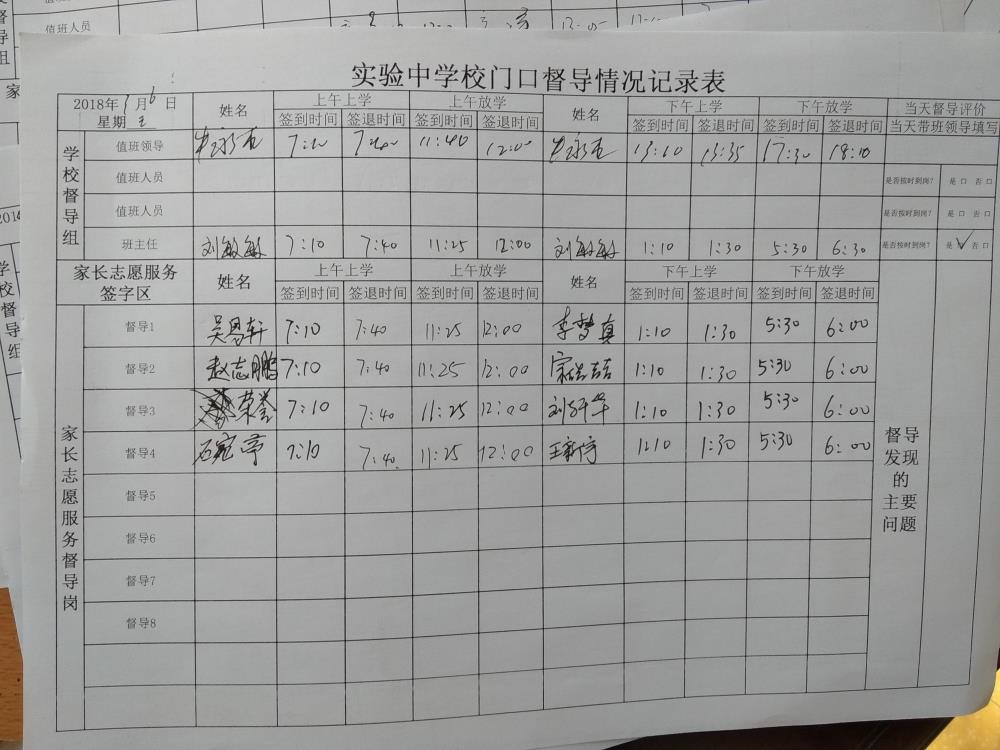 值班人员
实验中学校门口督导情况记录表
2018年 月6日 姓名 上午上学 上午放学 姓名 下午上学 下午放学 当天督导评价
星期五 签到时间 签退时间 签到时间 签退时间 签到时间 签退时间 签到时间 签退时间 当天带班领导填写
学校督导组
值班领导 7:10 7:40 11:40 12:00 13:10 13:35 17:30 18:10
值班人员 是否按时到岗? 是口 否口
值班人员 是否按时到岗? 是口 否口
班主任 刘敏敏 7:10 7:40 11:25 12:00 刘敏敏 1:10 1:30 5:30 6:30 是否按时到岗? 是 否口
家长志愿服务 姓名 上午上学 上午放学 姓名 下午上学 下午放学
签字区 签到时间 签退时间 签到时间 签退时间 签到时间 签退时间 签到时间 签退时间
家长志愿服务督导岗
督导1 吴易轩 7:10 7:40 11:25 12:00 李梦真 1:10 1:30 5:30 6:00
督导2 赵志鹏 7:10 7:40 11:25 12:00 1:10 1:30 5:30 6:00
督导3 荣誉 7:10 7:40 11:25 12:00 1:10 1:30 5:30 6:00
督导4 石宛亭 7:10 7:40 11:25 12:00 1:10 1:30 5:30 6:00
督导5
督导6
督导7
督导8
督导
发现
的
主要
问题